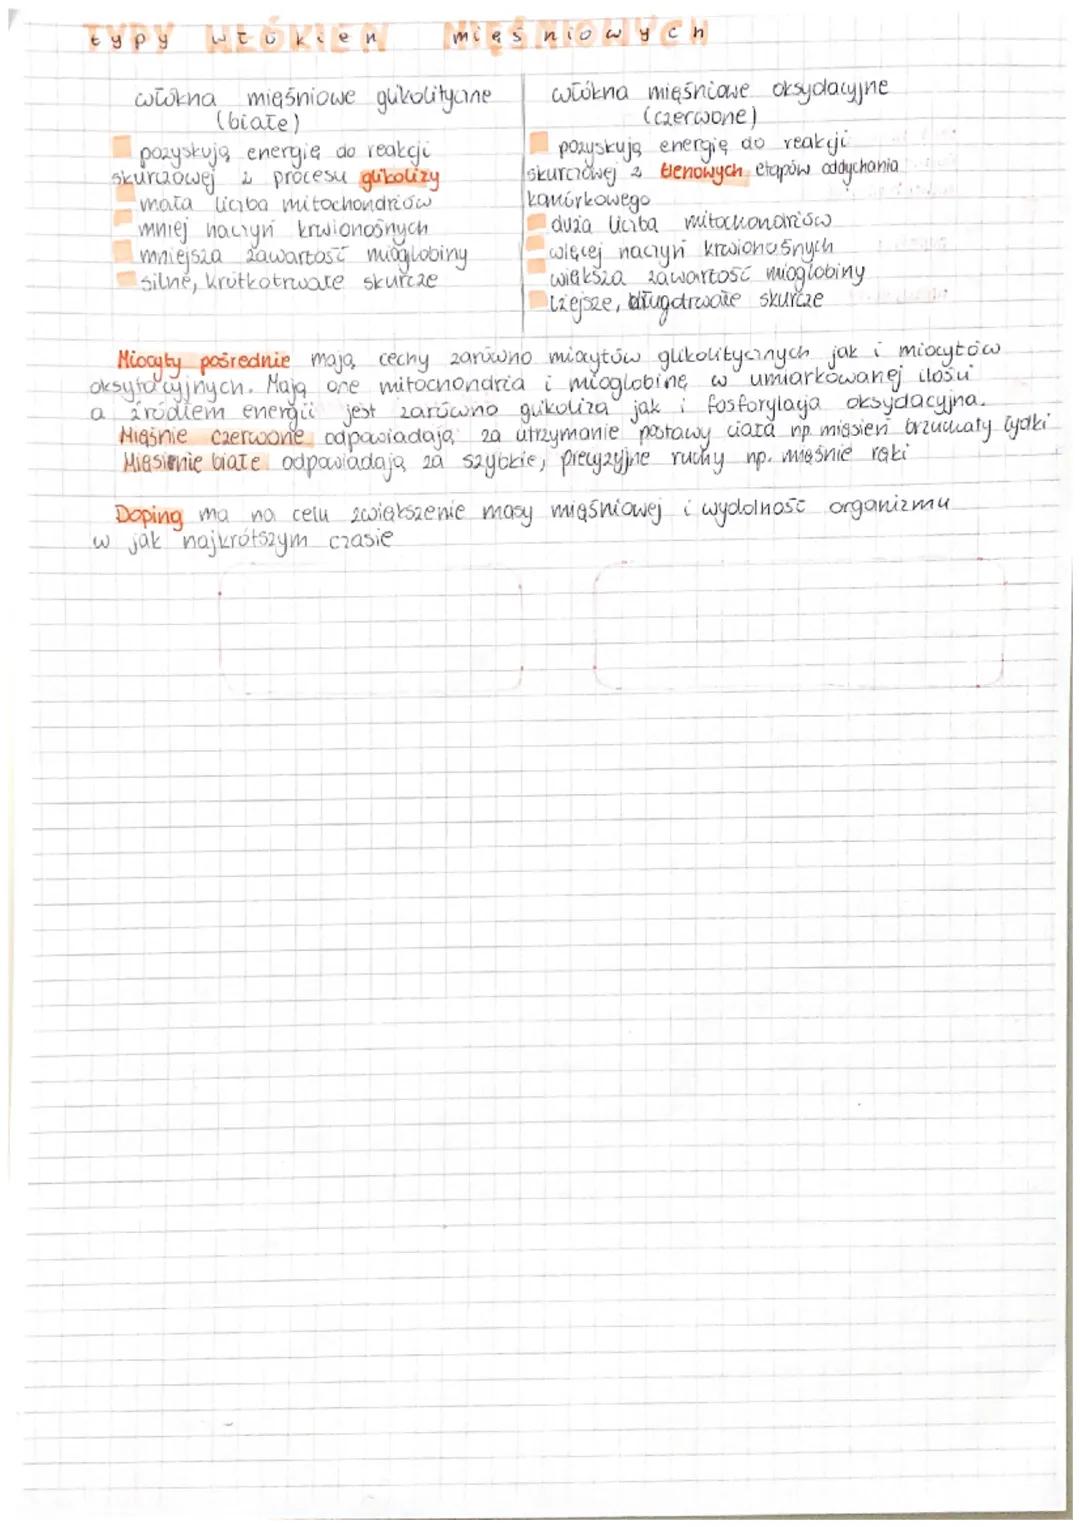 typy włókien mięśniowych
włókna mięśniowe glikolityczne
(białe)
pozyskują energię do reakcji
skurczowej z procesu glikolizy
mała liczba mitochondriów
mniej naczyń krwionośnych
mniejsza zawartość mioglobiny
silne, krótkotrwałe skurcze
włókna mięśniowe oksydacyjne
(czerwone)
pozyskują energię do reakcji
skurczowej z tlenowych etapów oddychania
komórkowego
duża liczba mitochondriów
więcej naczyń krwionośnych
większa zawartość mioglobiny
lżejsze, długotrwałe skurcze
Miocyty pośrednie mają cechy zarówno miocytów glikolitycznych jak i miocytów
oksydacyjnych. Mają one mitochondria i mioglobinę w umiarkowanej ilości
a źródłem energii jest zarówno glikoliza jak i fosforylacja oksydacyjna.
Mięśnie czerwone odpowiadają za utrzymanie postawy ciała np mięsień brzuchaty łydki
Mięsienię białe odpowiadają za szybkie, precyzyjne ruchy np. mięśnie ręki
Doping ma na celu zwiększenie masy mięśniowej i wydolność organizmu
w jak najkrótszym czasie